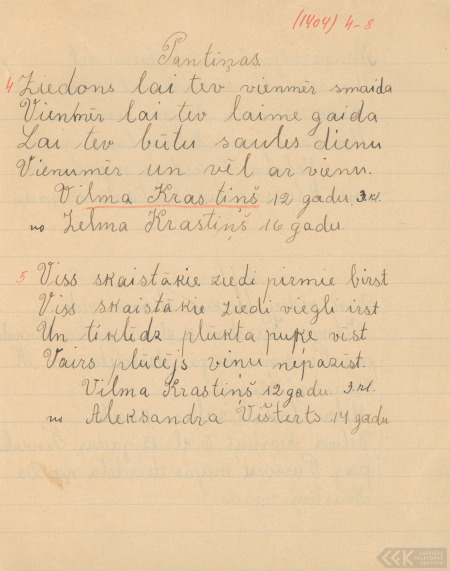 (1404) 4-8
Pantiņas.
4 Ziedons lai tev vienmēr smaida
Vienmēr lai tev laime gaida
Lai tev būtu saules dienu
Vienumēr un vēl ar vienu.
Vilma Krastiņš 12 gadu. 3.kl.
no Zelma Krastiņš 16 gadu.
5 Viss skaistākie ziedi pirmie birst
Viss skaistākie ziedi viegli irst
Un tiklīdz plūkta puķe vīst
Vairs plūcējs viņu nepazīst.
Vilma Krastiņš 12 gadu. 3.kl.
no Aleksandra Višterts 14 gadu
LATVIEŠU
FOLKLORAS
KRĀTUVE